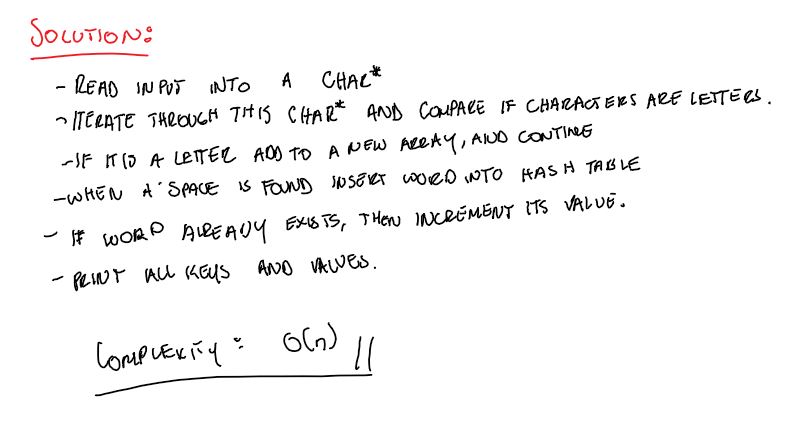 SOLUTION:
- READ INPUT INTO A CHAR*
- ITERATE THROUGH THIS CHAR* AND COMPARE IF CHARACTERS ARE LETTERS.
- IF IT IS A LETTER ADD TO A NEW ARRAY, AND CONTINE
- WHEN A SPACE IS FOUND INSERT WORD INTO HASH TABLE
- IF WORD ALREADY EXISTS, THEN INCREMENT ITS VALUE.
- PRINT ALL KEYS AND VALUES.
COMPLEXITY: O(n) //